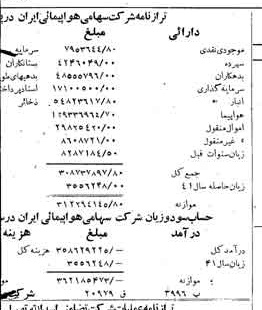 ترازنامه شرکت سهامی هواپیمائی ایران در
دارائی مبلغ
موجودی نقدی ۷۹۵۳۶۴۴/۸۰ سرمایه
سپرده ۴۲۴۶۰۴۹/۰۰ بستانکاران
بدهکاران ۴۸۵۵۵۷۹۶/۰۰ بدهیهای
سرمایه گذاری ۱۷۱۰۰۵۰۰/۰۰ اسناد
انبار ۵۴۸۲۳۶۱۷/۸۰ ذخائر
هواپیما
اموال منقول ۲۹۸۲۵۴۲۰/۰۰
» غیر منقول ۸۶۰۸۷۲۱/۰۰
زیان سنوات قبل ۸۲۸۷۱۸۴/۵۰
جمع کل ۳۰۸۷۳۷۸۹۷/۸۰
زیان حاصله سال ۴۱ ۳۵۵۶۲۴۸/۰۰
موازنه ۳۱۲۲۹۴۱۴۵/۸۰
حساب سود و زیان شرکت سهامی هواپیمائی ایران در
درآمد مبلغ هزینه
درآمد کل ۳۵۸۶۲۹۲۲۵/- هزینه کل
زیان سال ۴۱ ۳۵۵۶۲۴۸/-
موازنه ۳۶۲۱۸۵۴۷۳/-
پ ۳۹۹۶ ق ۲۰۹۷۹ شرکت